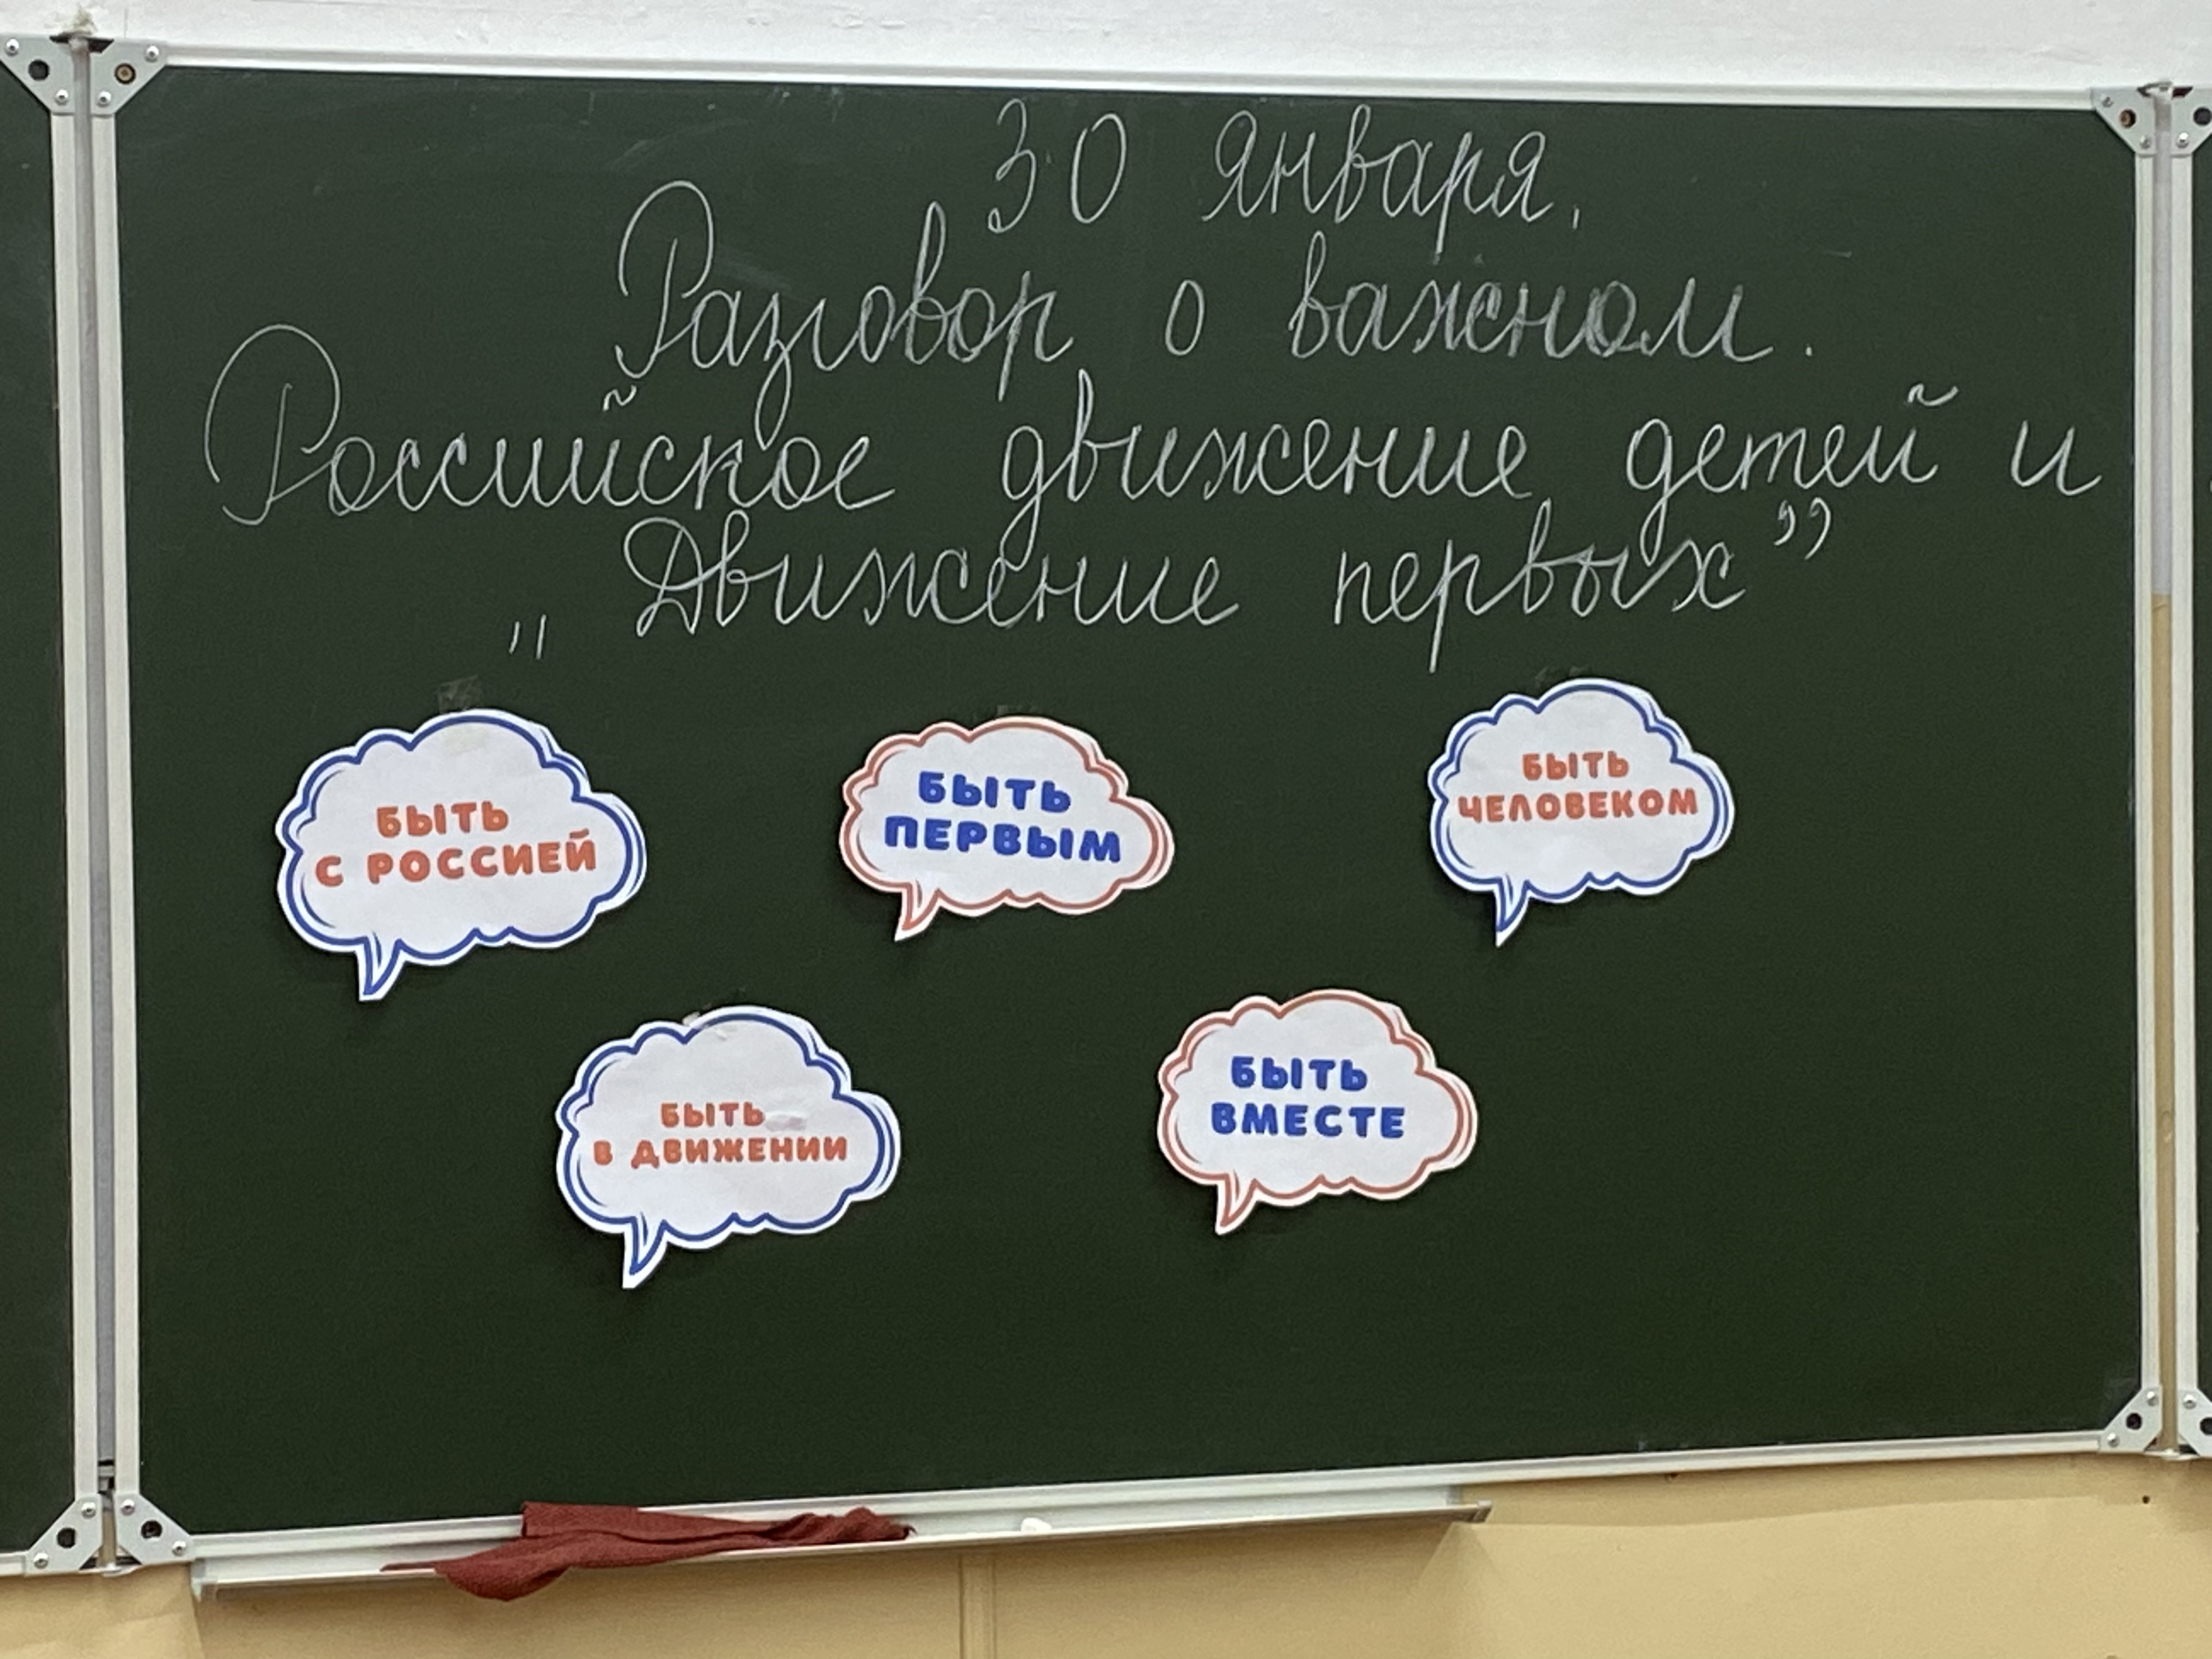 30 января.
Разговор о важном.
Российское движение детей и
„Движение первых”
БЫТЬ
С РОССИЕЙ
БЫТЬ
ПЕРВЫМ
БЫТЬ
ЧЕЛОВЕКОМ
БЫТЬ
В ДВИЖЕНИИ
БЫТЬ
ВМЕСТЕ